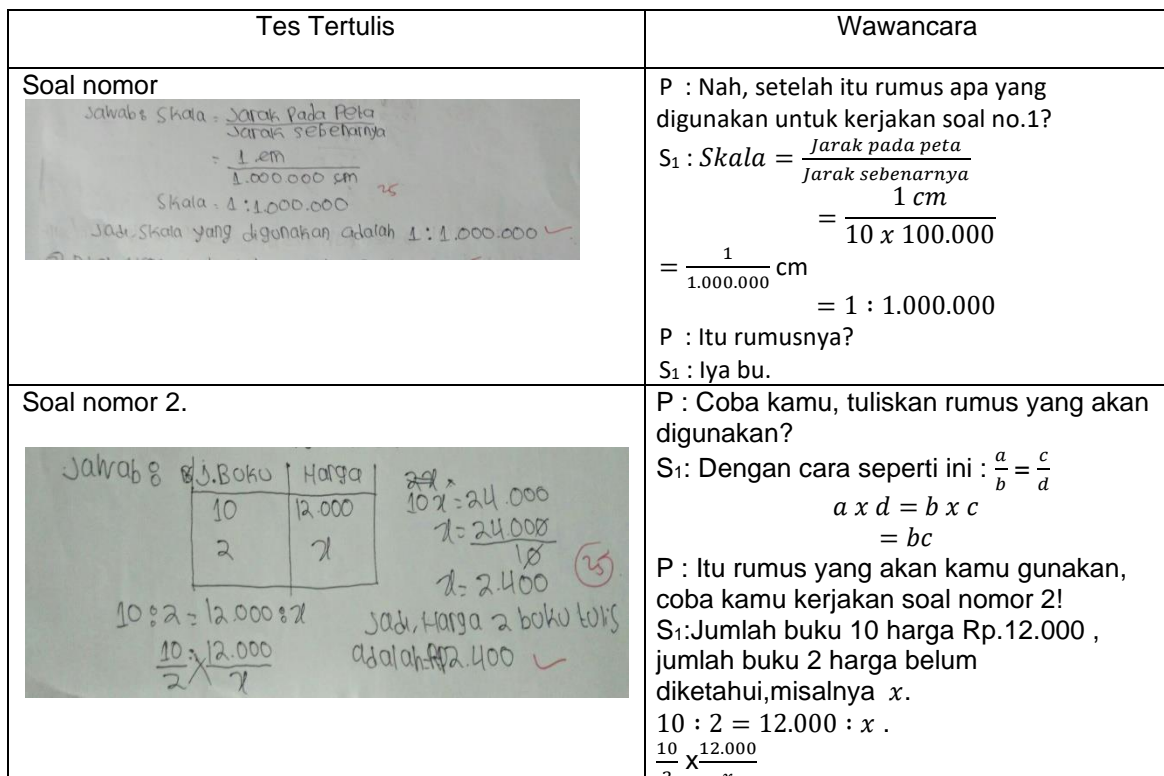 Tes Tertulis
Wawancara
Soal nomor
Jawab : Skala = Jarak Pada Peta
Jarak sebenarnya
= 1 cm
1.000.000 cm
25
Skala = 1 : 1.000.000
Jadi, Skala yang digunakan adalah 1 : 1.000.000 ✓
P : Nah, setelah itu rumus apa yang
digunakan untuk kerjakan soal no.1?
S₁ : Skala = Jarak pada peta
Jarak sebenarnya
= 1 cm
10 x 100.000
= 1
1.000.000 cm
= 1 : 1.000.000
P : Itu rumusnya?
S₁ : Iya bu.
Soal nomor 2.
Jawab : J.Boku Harga
10 12.000
2 x
10 : 2 = 12.000 : x
10 × 12.000
2 x
10x = 24.000
x = 24.000
10
x = 2.400
25
Jadi, Harga 2 boku tulis
adalah Rp2.400 ✓
P : Coba kamu, tuliskan rumus yang akan
digunakan?
S₁: Dengan cara seperti ini : a/b = c/d
a x d = b x c
= bc
P : Itu rumus yang akan kamu gunakan,
coba kamu kerjakan soal nomor 2!
S₁:Jumlah buku 10 harga Rp.12.000 ,
jumlah buku 2 harga belum
diketahui,misalnya x.
10 : 2 = 12.000 : x .
10 x 12.000